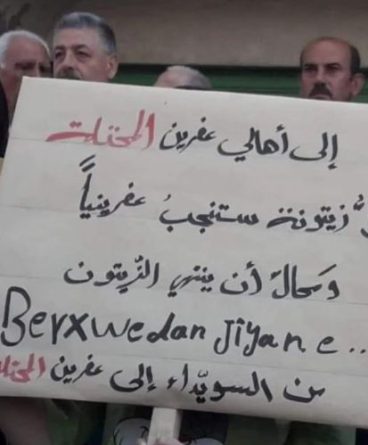 إلى أهالي عفرين المحتلة
زيتونة ستنجبُ عفرينياً
ومحالَ أن ينتهي الزّيتون
Berxwedan Jîyane..
من السويداء إلى عفرين